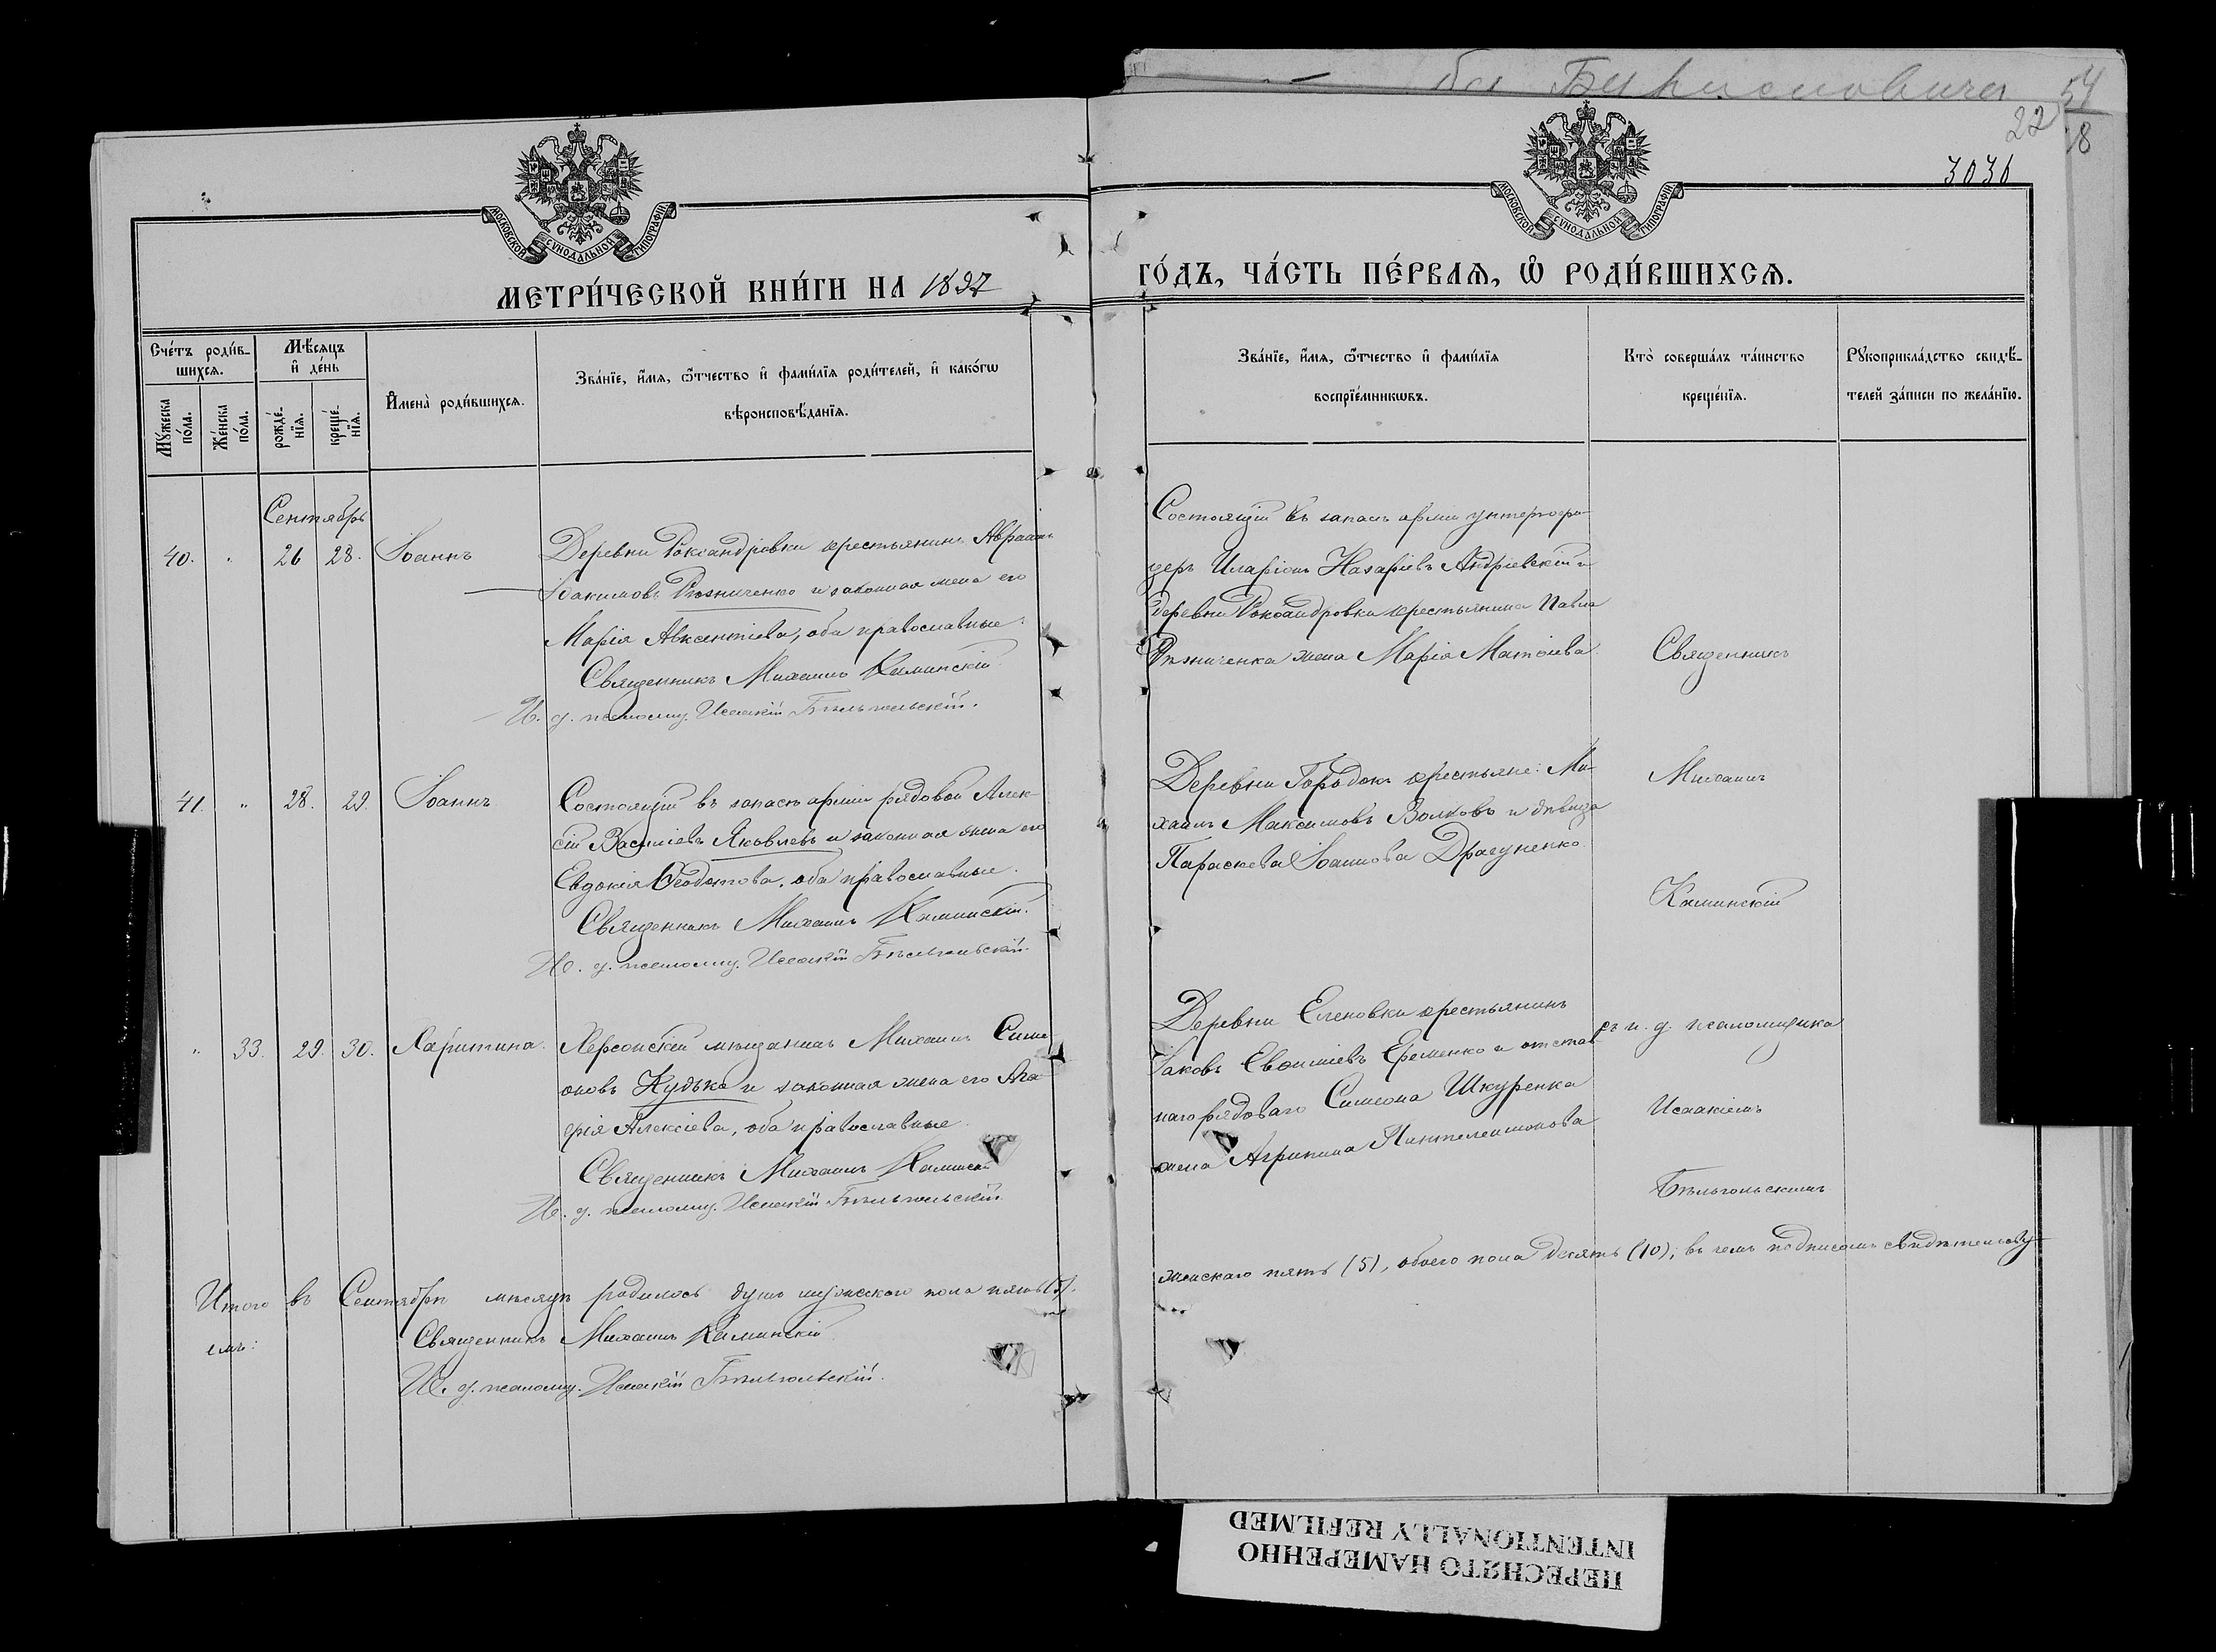 54
22
18
3036
МОСКОВСКОЙ СѴНОДАЛЬНОЙ ТИПОГРАФІИ
МОСКОВСКОЙ СѴНОДАЛЬНОЙ ТИПОГРАФІИ
МЕТРИ́ЧЕСКОЙ КНИ́ГИ НА 1897 ГО́ДЪ, ЧА́СТЬ ПЕ́РВАѦ, Ѡ҆ РОДИ́ВШИХСѦ.
Сче́тъ роди́в-
шихсѧ.
Мꙋ́жеска по́ла.
Же́нска по́ла.
Мѣ́сѧцъ и҆ де́нь
рожде́-нїѧ.
креще́-нїѧ.
И҆мена̀ роди́вшихсѧ.
Зва́нїе, и҆́мѧ, ѻ҆́тчество и҆ фами́лїѧ роди́телей, и҆ како́гѡ
вѣроисповѣ́данїѧ.
Зва́нїе, и҆́мѧ, ѻ҆́тчество и҆ фами́лїѧ
воспрїе́мникѡвъ.
Кто̀ соверша́лъ та́инство
креще́нїѧ.
Рꙋкоприкла́дство свидѣ́-
телей за́писи по жела́нїю.
Сентябрь
40. " 26 28. Іоаннъ
Деревни Роксандровки крестьянинъ Авраамъ
Іоакимовъ Рѣзниченко и законная жена его
Марія Авксентіева, оба православные.
Священникъ Михаилъ Каминскій
И. д. псаломщ. Исаакій Бѣльгольскій.
Состоящій въ запасѣ арміи унтерофи-
церъ Иларіонъ Назаріевъ Андріевскій и
деревни Роксандровки крестьянина Павла
Рѣзниченка жена Марія Матѳіева.
Священникъ
41. " 28. 29. Іоаннъ
Состоящій въ запасѣ арміи рядовой Алек-
сій Василіевъ Яковлевъ и законная жена его
Евдокія Ѳеодотова, оба православные.
Священникъ Михаилъ Каминскій.
И. д. псаломщ. Исаакій Бѣльгольскій.
Деревни Городокъ крестьяне: Ми-
хаилъ Максимовъ Волковъ и дѣвица
Параскева Іоаннова Драгуненко.
Михаилъ
Каминскій
" 33. 29. 30. Харитина.
Херсонскій мѣщанинъ Михаилъ Симе
оновъ Кудька и законная жена его
Алексіева, оба православные.
Священникъ Михаилъ Каминскій
И. д. псаломщ. Исаакій Бѣльгольскій.
Деревни Еленовки крестьянинъ
Іаковъ Евѳиміевъ Еременко и отстав
наго рядоваго Симеона Шкуренка
жена Агрипина Пантелеимонова
съ и. д. псаломщика
Исаакіемъ
Бѣльгольскимъ
Итого въ Сентябрѣ мѣсяцѣ родилось душъ мужескаго пола пять (5).
женскаго пять (5), обоего пола десять (10); въ чемъ подписомъ свидѣтельству-
емъ:
Священникъ Михаилъ Каминскій
И. д. псаломщ. Исаакій Бѣльгольскій.
ПЕРЕСНЯТО НАМЕРЕННО
INTENTIONALLY REFILMED